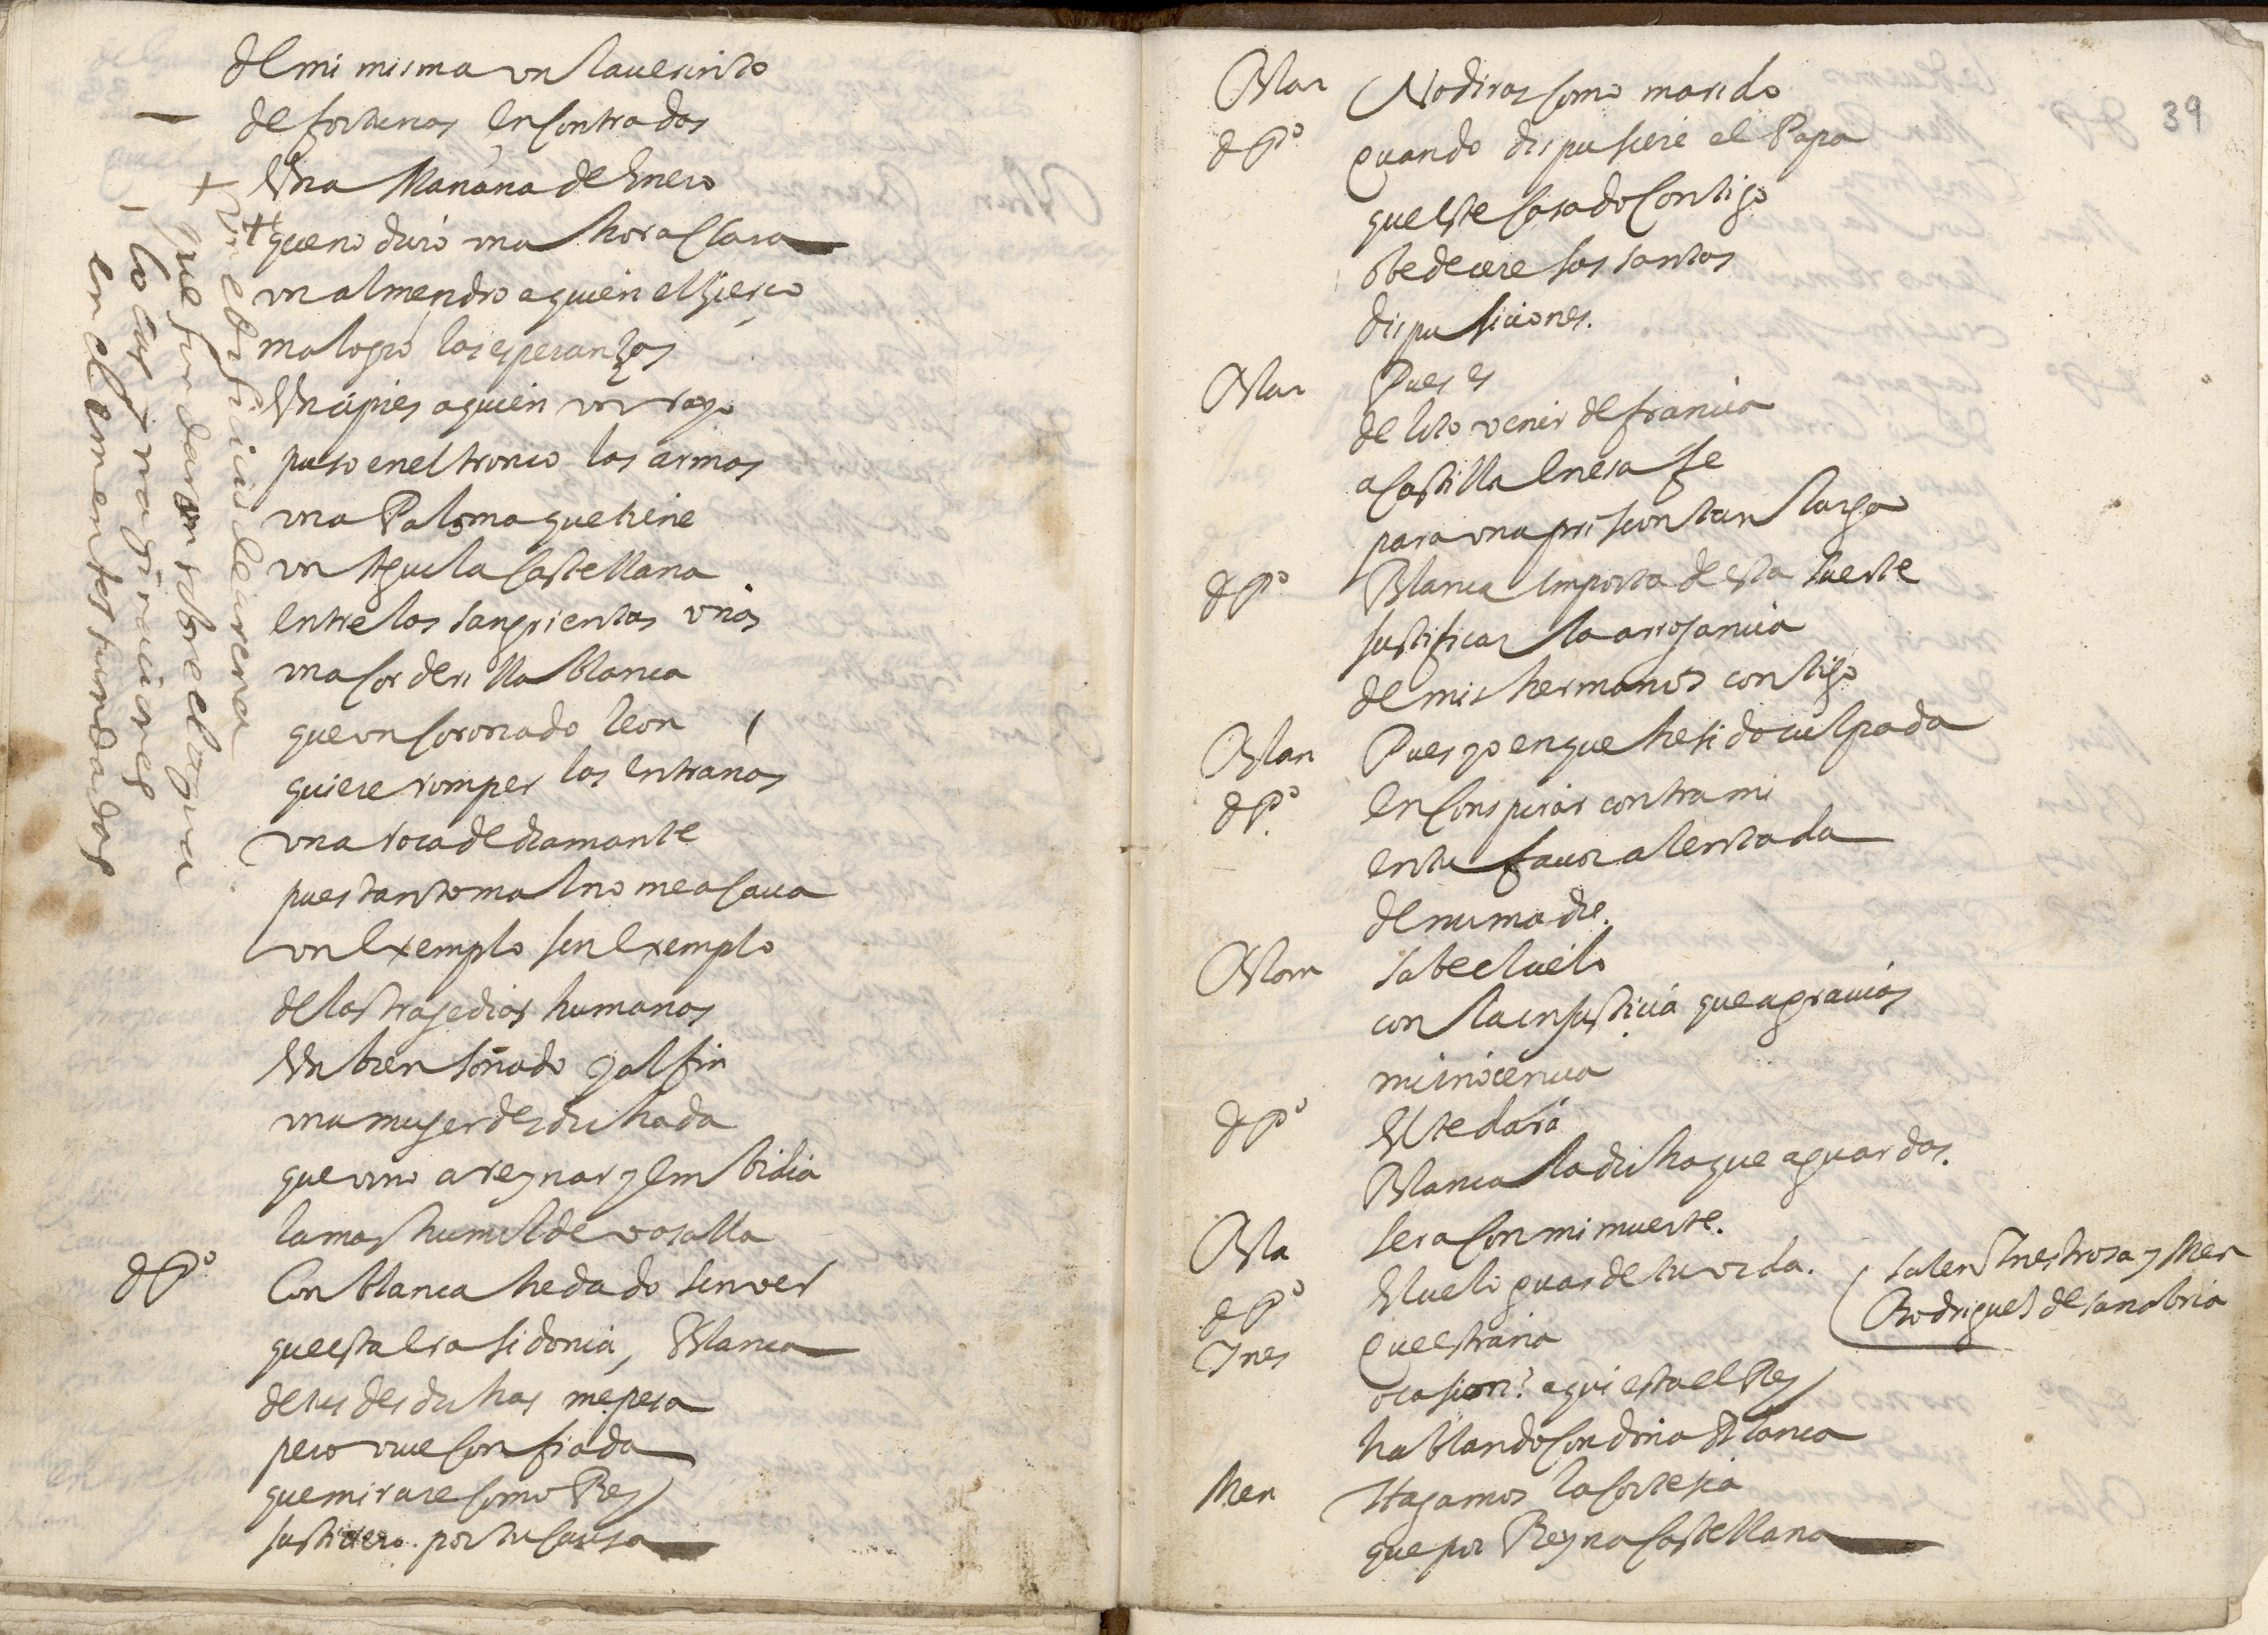 de mi misma un lauerinto
de fortunas encontradas
Una Mañana de Enero
que no duro una hora clara
un almendro a quien el zierço
malogro las esperanzas
Un cipres a quien un rayo
puso en el tronco las armas
una Paloma que tiene
un Aguila castellana
entre las sangrientas uñas
una corderilla blanca
que un coronado leon
quiere romper las entrañas
una roca de diamante
pues tanto mal no me acaua
un exemplo sin exemplo
de las tragedias humanas
Un bien soñado y al fin
una muger desdichada
que vino a reynar y embidia
la mas humilde vasalla
d Po Con blanca he dado sin ver
que esta era sidonia, Blanca
de tus desdichas me pesa
pero viue confiada
que mirare como Rey
justiciero por tu causa
+ Un edificio de arena
que fundaron sobre el agua
locas ymaginaciones
en elementos fundadas
39
Blan No diras como marido
d Po Quando dispusiere el Papa
que este casado contigo
obedecere sus santas
disposiciones.
Blan Pues es
delito venir de francia
a Castilla en esa fe
para una prision tan larga
d Po Blanca importa de esta suerte
justificar la arrogancia
de mis hermanos contigo
Blan Pues yo en que he sido culpada
d Po en conspirar contra mi
en tu fauor alentada
de mi madre.
Blan sabe el cielo
con la injusticia que agrauias
mi inocencia
d Po El te dara
Blanca la dicha que aguardas.
Bla sera con mi muerte.
d Po El cielo guarde tu vida.
(salen Inestrosa y Men
Rodriguez de sanabria
Ines Que estraña
ocasion? aqui esta el Rey
hablando con doña Blanca
Men Hagamos la cortesia
que por Reyna castellana